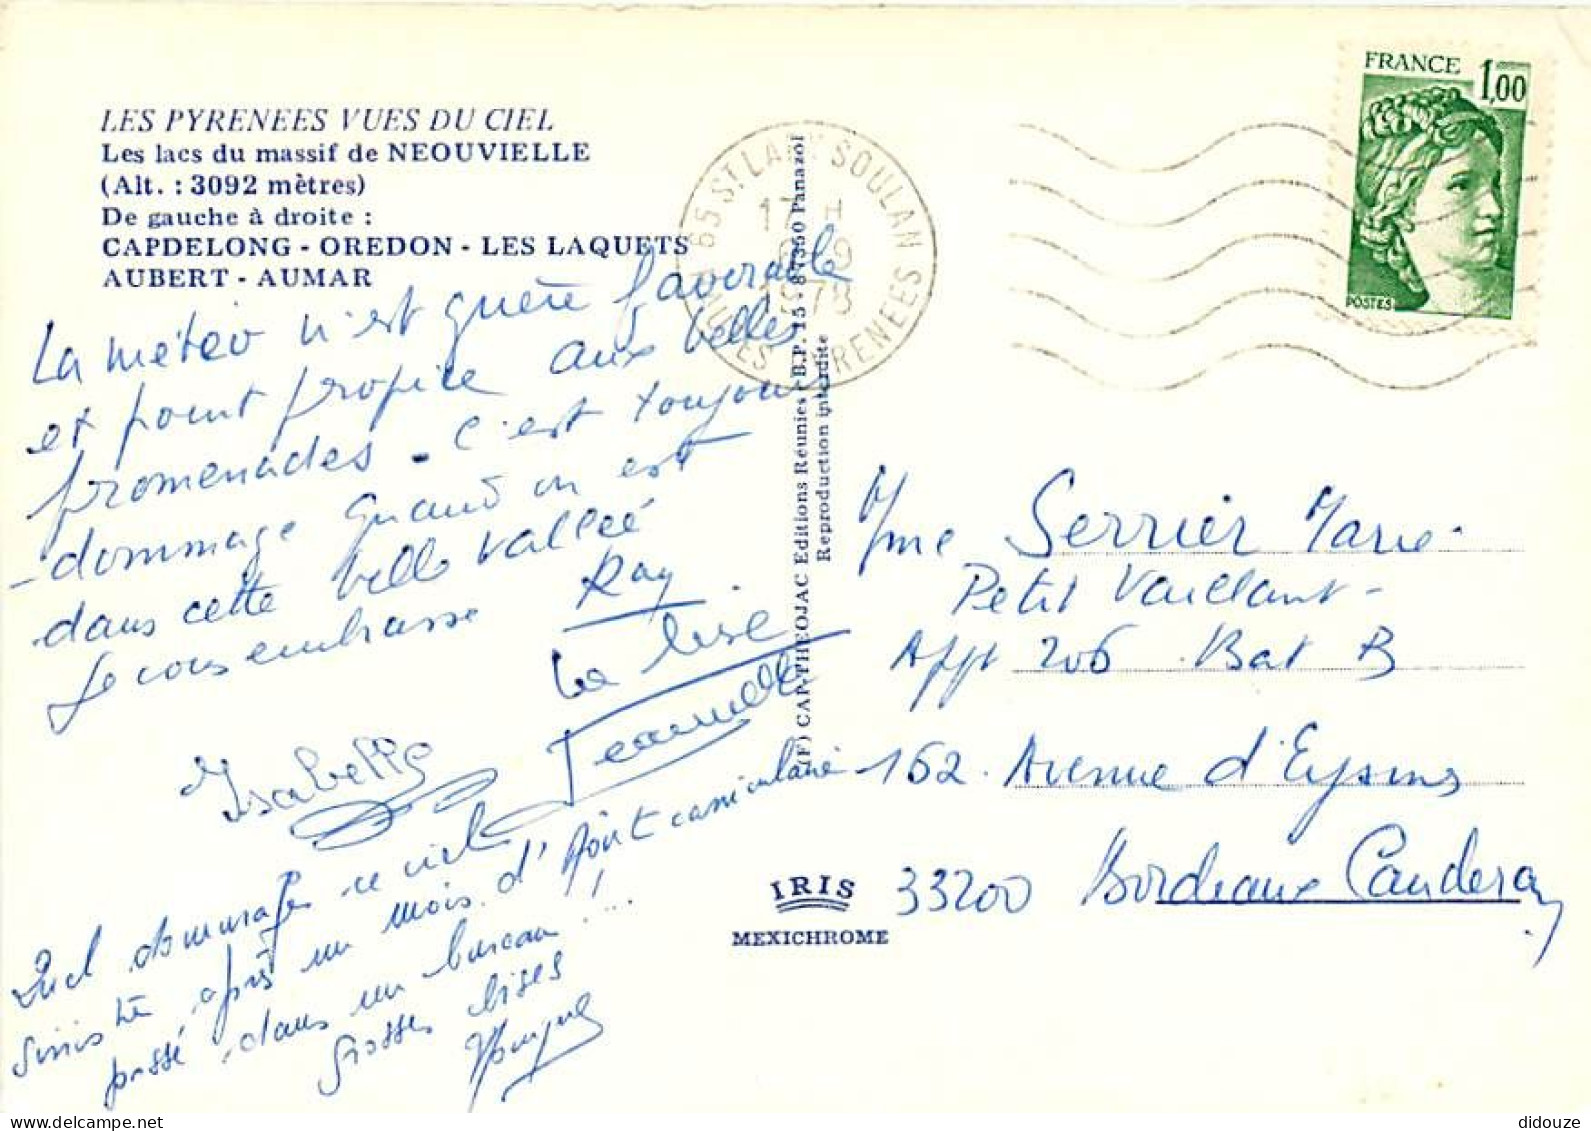 LES PYRENEES VUES DU CIEL
Les lacs du massif de NEOUVIELLE
(Alt. : 3092 mètres)
De gauche à droite :
CAPDELONG - OREDON - LES LAQUETS
AUBERT - AUMAR
La météo n'est guère favorable
et point propice aux belles
promenades. C'est toujours
dommage quand on est
dans cette belle vallée
Je vous embrasse Ray
La bise
Jeannette
Isabelle
Quel dommage ce ciel
sinistre après un mois d'Août caniculaire
passé dans un bureau !!...
Grosses bises
65 ST. LARY SOULAN
17 H
9
1978
HAUTES PYRENEES
(F) CAP-THEOJAC Editions Réunies - B.P. 15 - 87350 Panazol
Reproduction interdite
FRANCE 1,00
POSTES
Mme Serrier Marie
Petit Vaillant
Appt 206 Bat B
162 Avenue d'Eysines
33200 Bordeaux Cauderan
IRIS
MEXICHROME
didouze